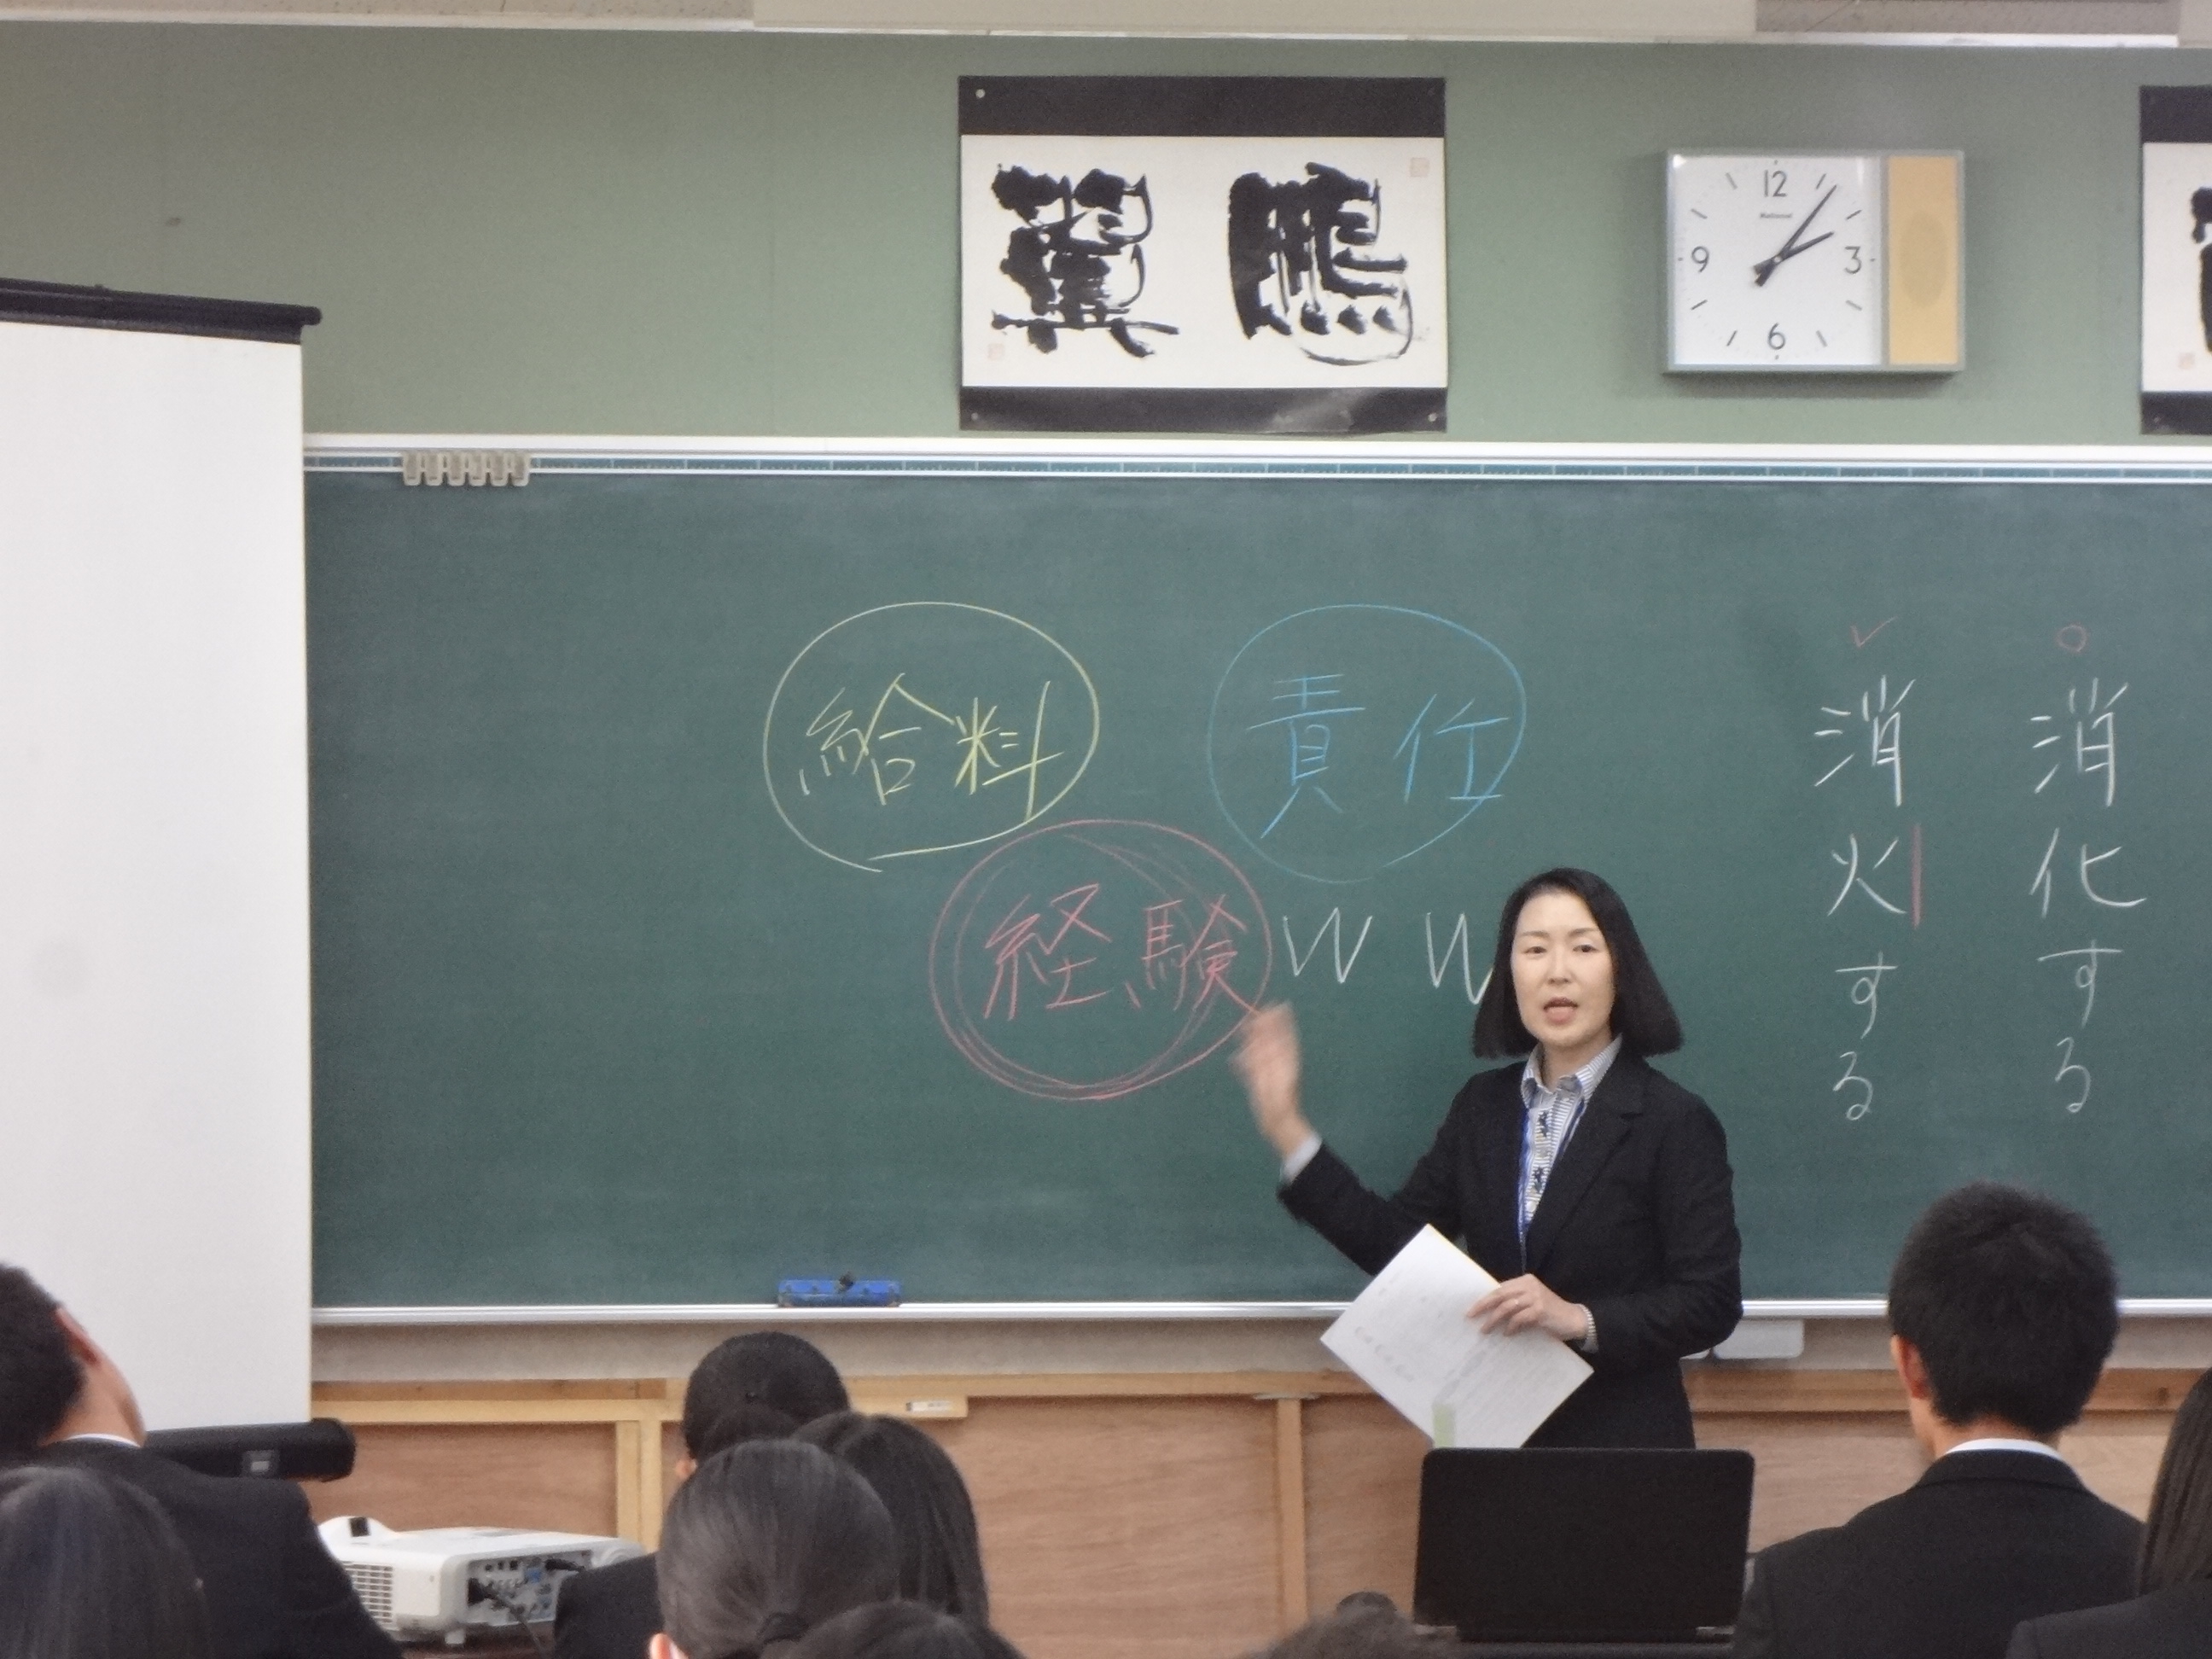 鵬翼
12
National
9 3
6
給料
責任
経験
W W
○消化する
✓消火する